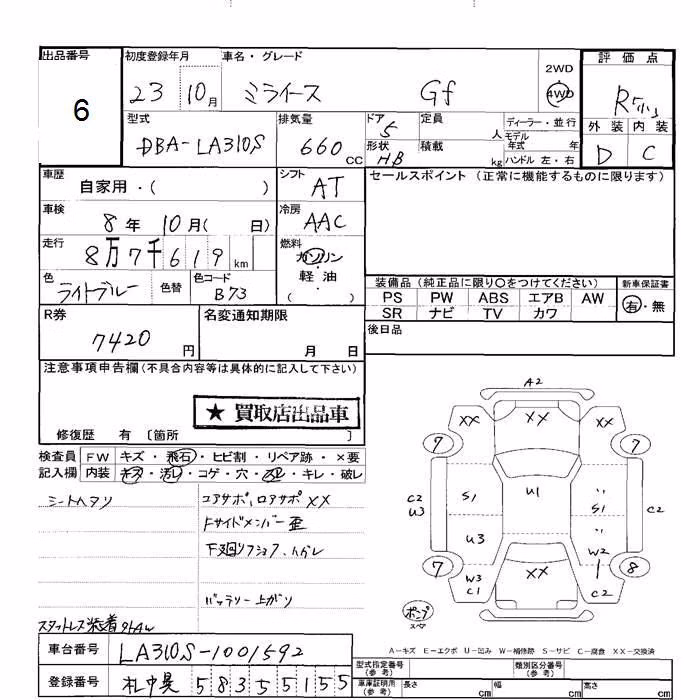 出品番号 6
初度登録年月 23 10月
車名・グレード ミライース Gf
2WD 4WD
評価点 R
外装 内装
D C
型式 DBA-LA310S
排気量 660 CC
ドア 5
形状 HB
定員 人
積載 kg
ディーラー・並行
モデル年式 年
ハンドル 左・右
車歴 自家用・( )
シフト AT
セールスポイント(正常に機能するものに限ります)
車検 8年 10月( 日)
冷房 AAC
走行 8万7千619km
燃料 ガソリン
軽油
( )
色 ライトブルー 色替 色コード B73
装備品(純正品に限り〇をつけてください) 新車保証書
PS PW ABS エアB AW 有・無
SR ナビ TV カワ
R券 7420円
名変通知期限 月 日
後日品
注意事項申告欄(不具合内容等は具体的に記入して下さい)
★ 買取店出品車
修復歴 有 〔箇所 〕
検査員記入欄
FW キズ・飛石・ヒビ割・リペア跡・×要
内装 キズ・汚れ・コゲ・穴・スレ・キレ・破レ
シートヘタリ
コアサポ、ロアサポ XX
Fサイドメンバー歪
下廻りフショク、ハガレ
バッテリー上がり
スタットレス装着
A2
XX XX XX
7 7
C2 U3 S1 U1 S1 C2
U3 W2
7 W3 C1 XX C2 8
A-キズ E-エクボ U-凹み W-補修跡 S-サビ C-腐食 XX-交換済
車台番号 LA310S-1001592
登録番号 札中晃 583 55155
型式指定番号(参考) 類別区分番号(参考)
車庫証明用(参考) 長さ cm 幅 cm 高さ cm